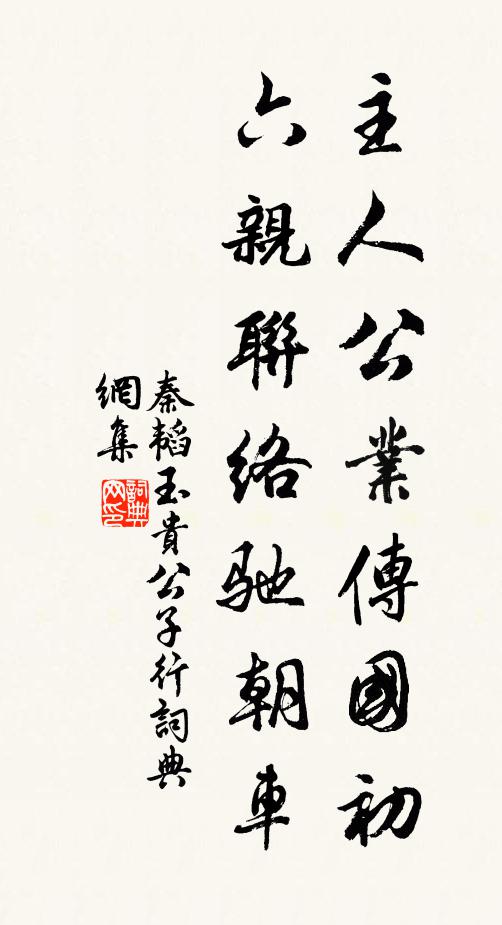 主人公業傳國初
六親聯絡馳朝車
秦韜玉貴公子行詞典
網集
詞典
网印